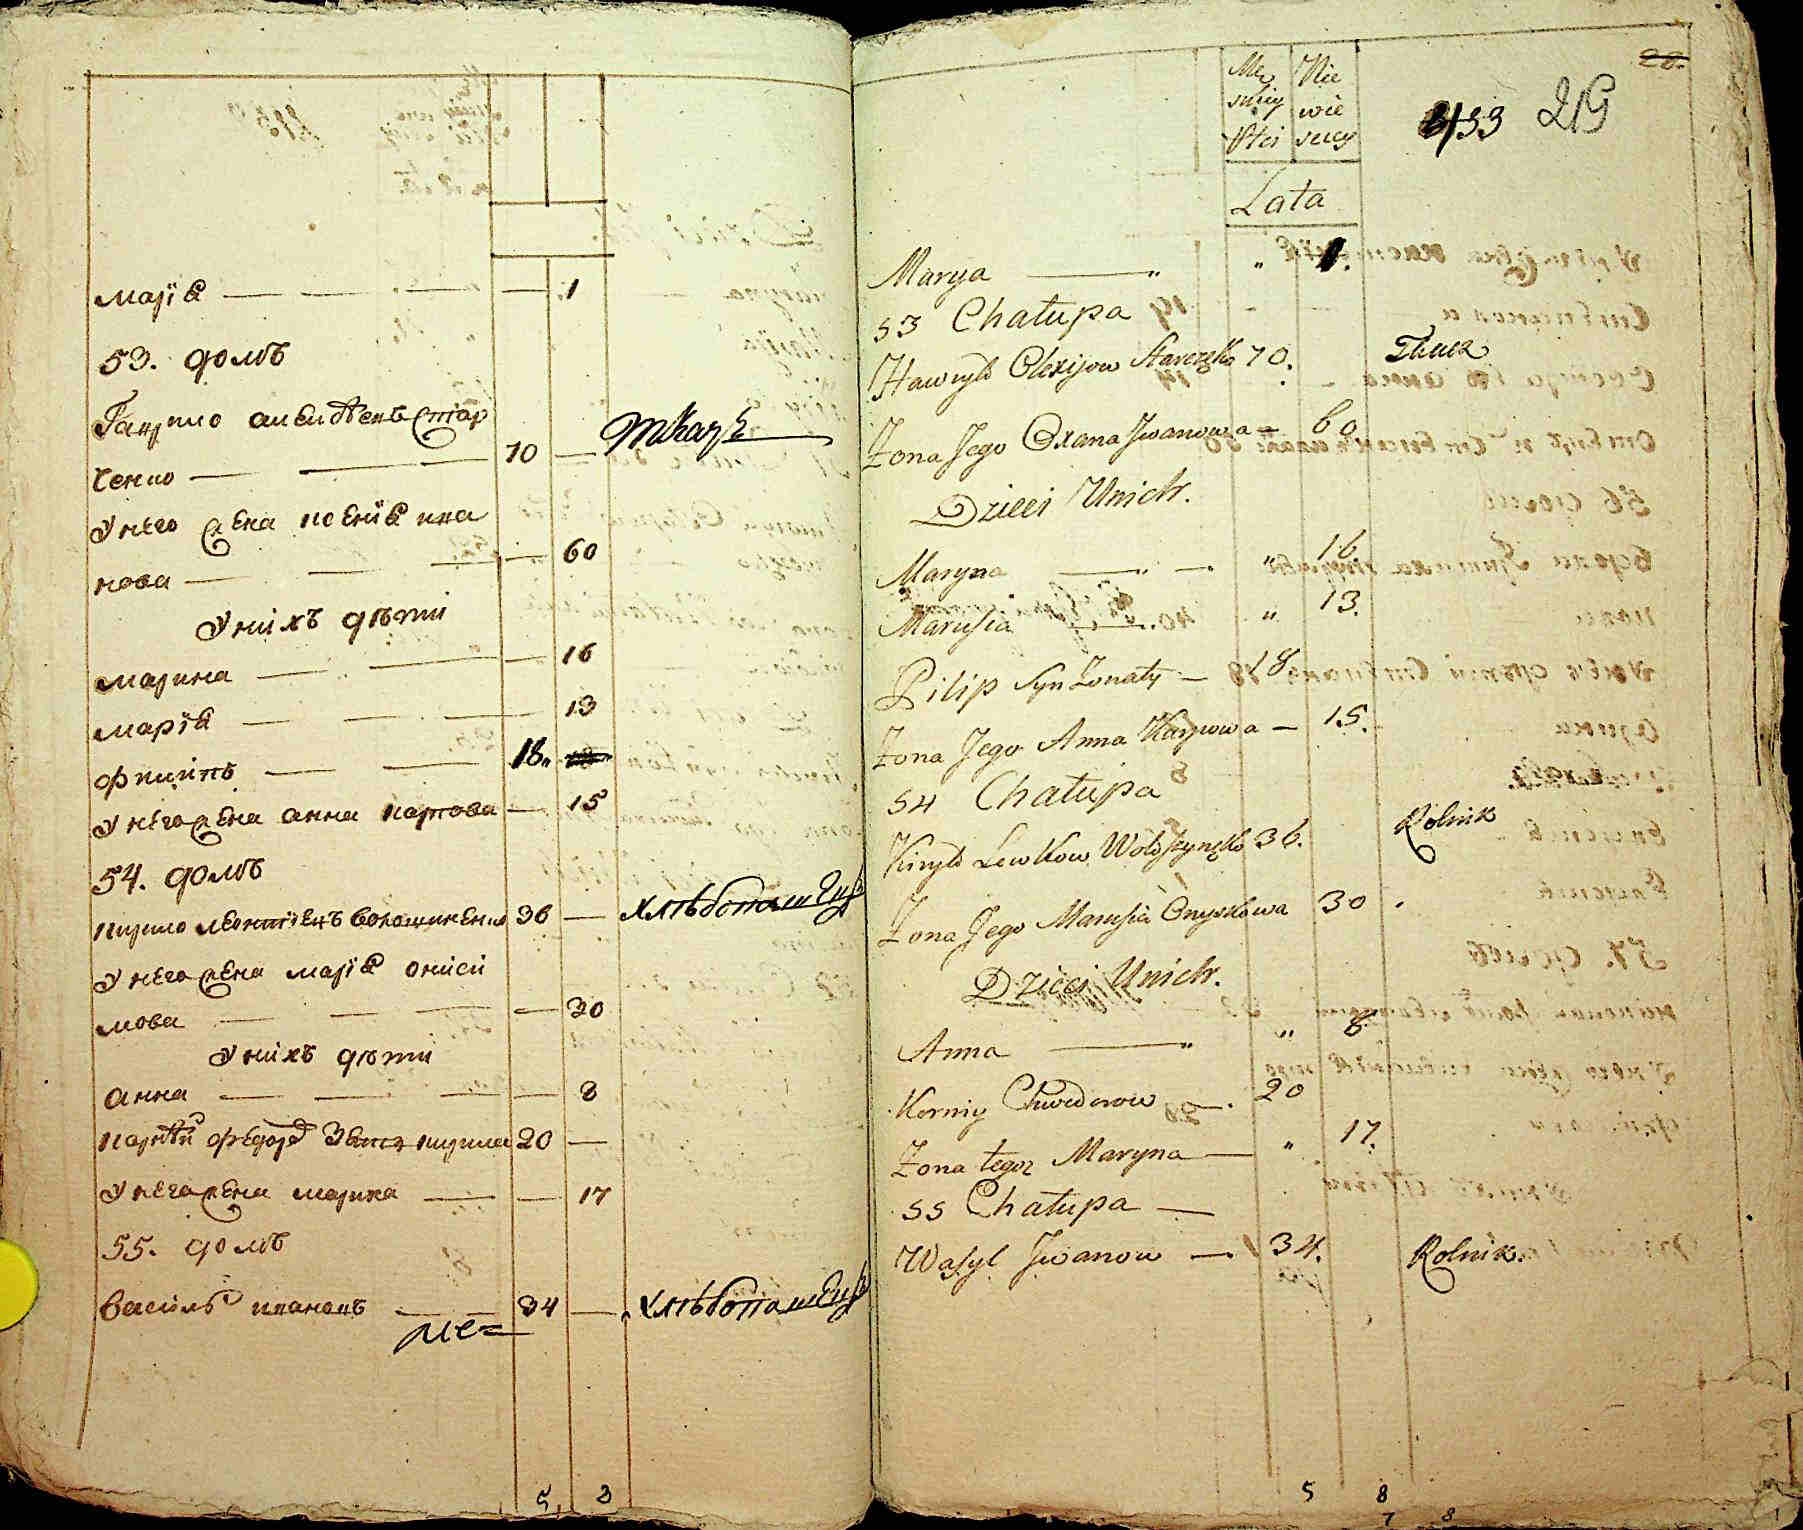 марія — 1
53. домъ
Гаврило алексѣевъ стар
ченко — 70 — ткачь
у него жена ксенія ива
нова — 60
у нихъ дѣти
марина — 16
марія — 13
филипъ — 18
у него жена анна карпова — 15
54. домъ
кирило леонтіевъ волошиненко 36 — хлѣбопашецъ
у него жена марія ониси
мова — 30
у нихъ дѣти
анна — 8
корнѣй федоровъ зять кирила 20 —
у него жена марина — 17
55. домъ
василь ивановъ — 34 — хлѣбопашецъ
5 8
Męż Nie
wie
Płci
Lata
433 219
28.
Marya — " " 1.
53 Chałupa
Hawryło Olexijow Starczęko 70. Tkacz
Zona Jego Oxana Jwanowa — 60
Dzieci Unich.
Maryna — " 16
Marusia — " 13.
Pilip Syn Zonaty — 18
Zona Jego Anna Karpowa — 15.
54 Chałupa
Kiryło Lewkow Wołoszynęko 36. Rolnik
Zona Jego Marusia Onyskowa 30.
Dzieci Unich.
Anna — " " 8
Korniy Chwedorow — 20
Zona tegoz Maryna — " 17.
55 Chałupa —
Wasyl Jwanow — 34. Rolnik.
5 8
7 8